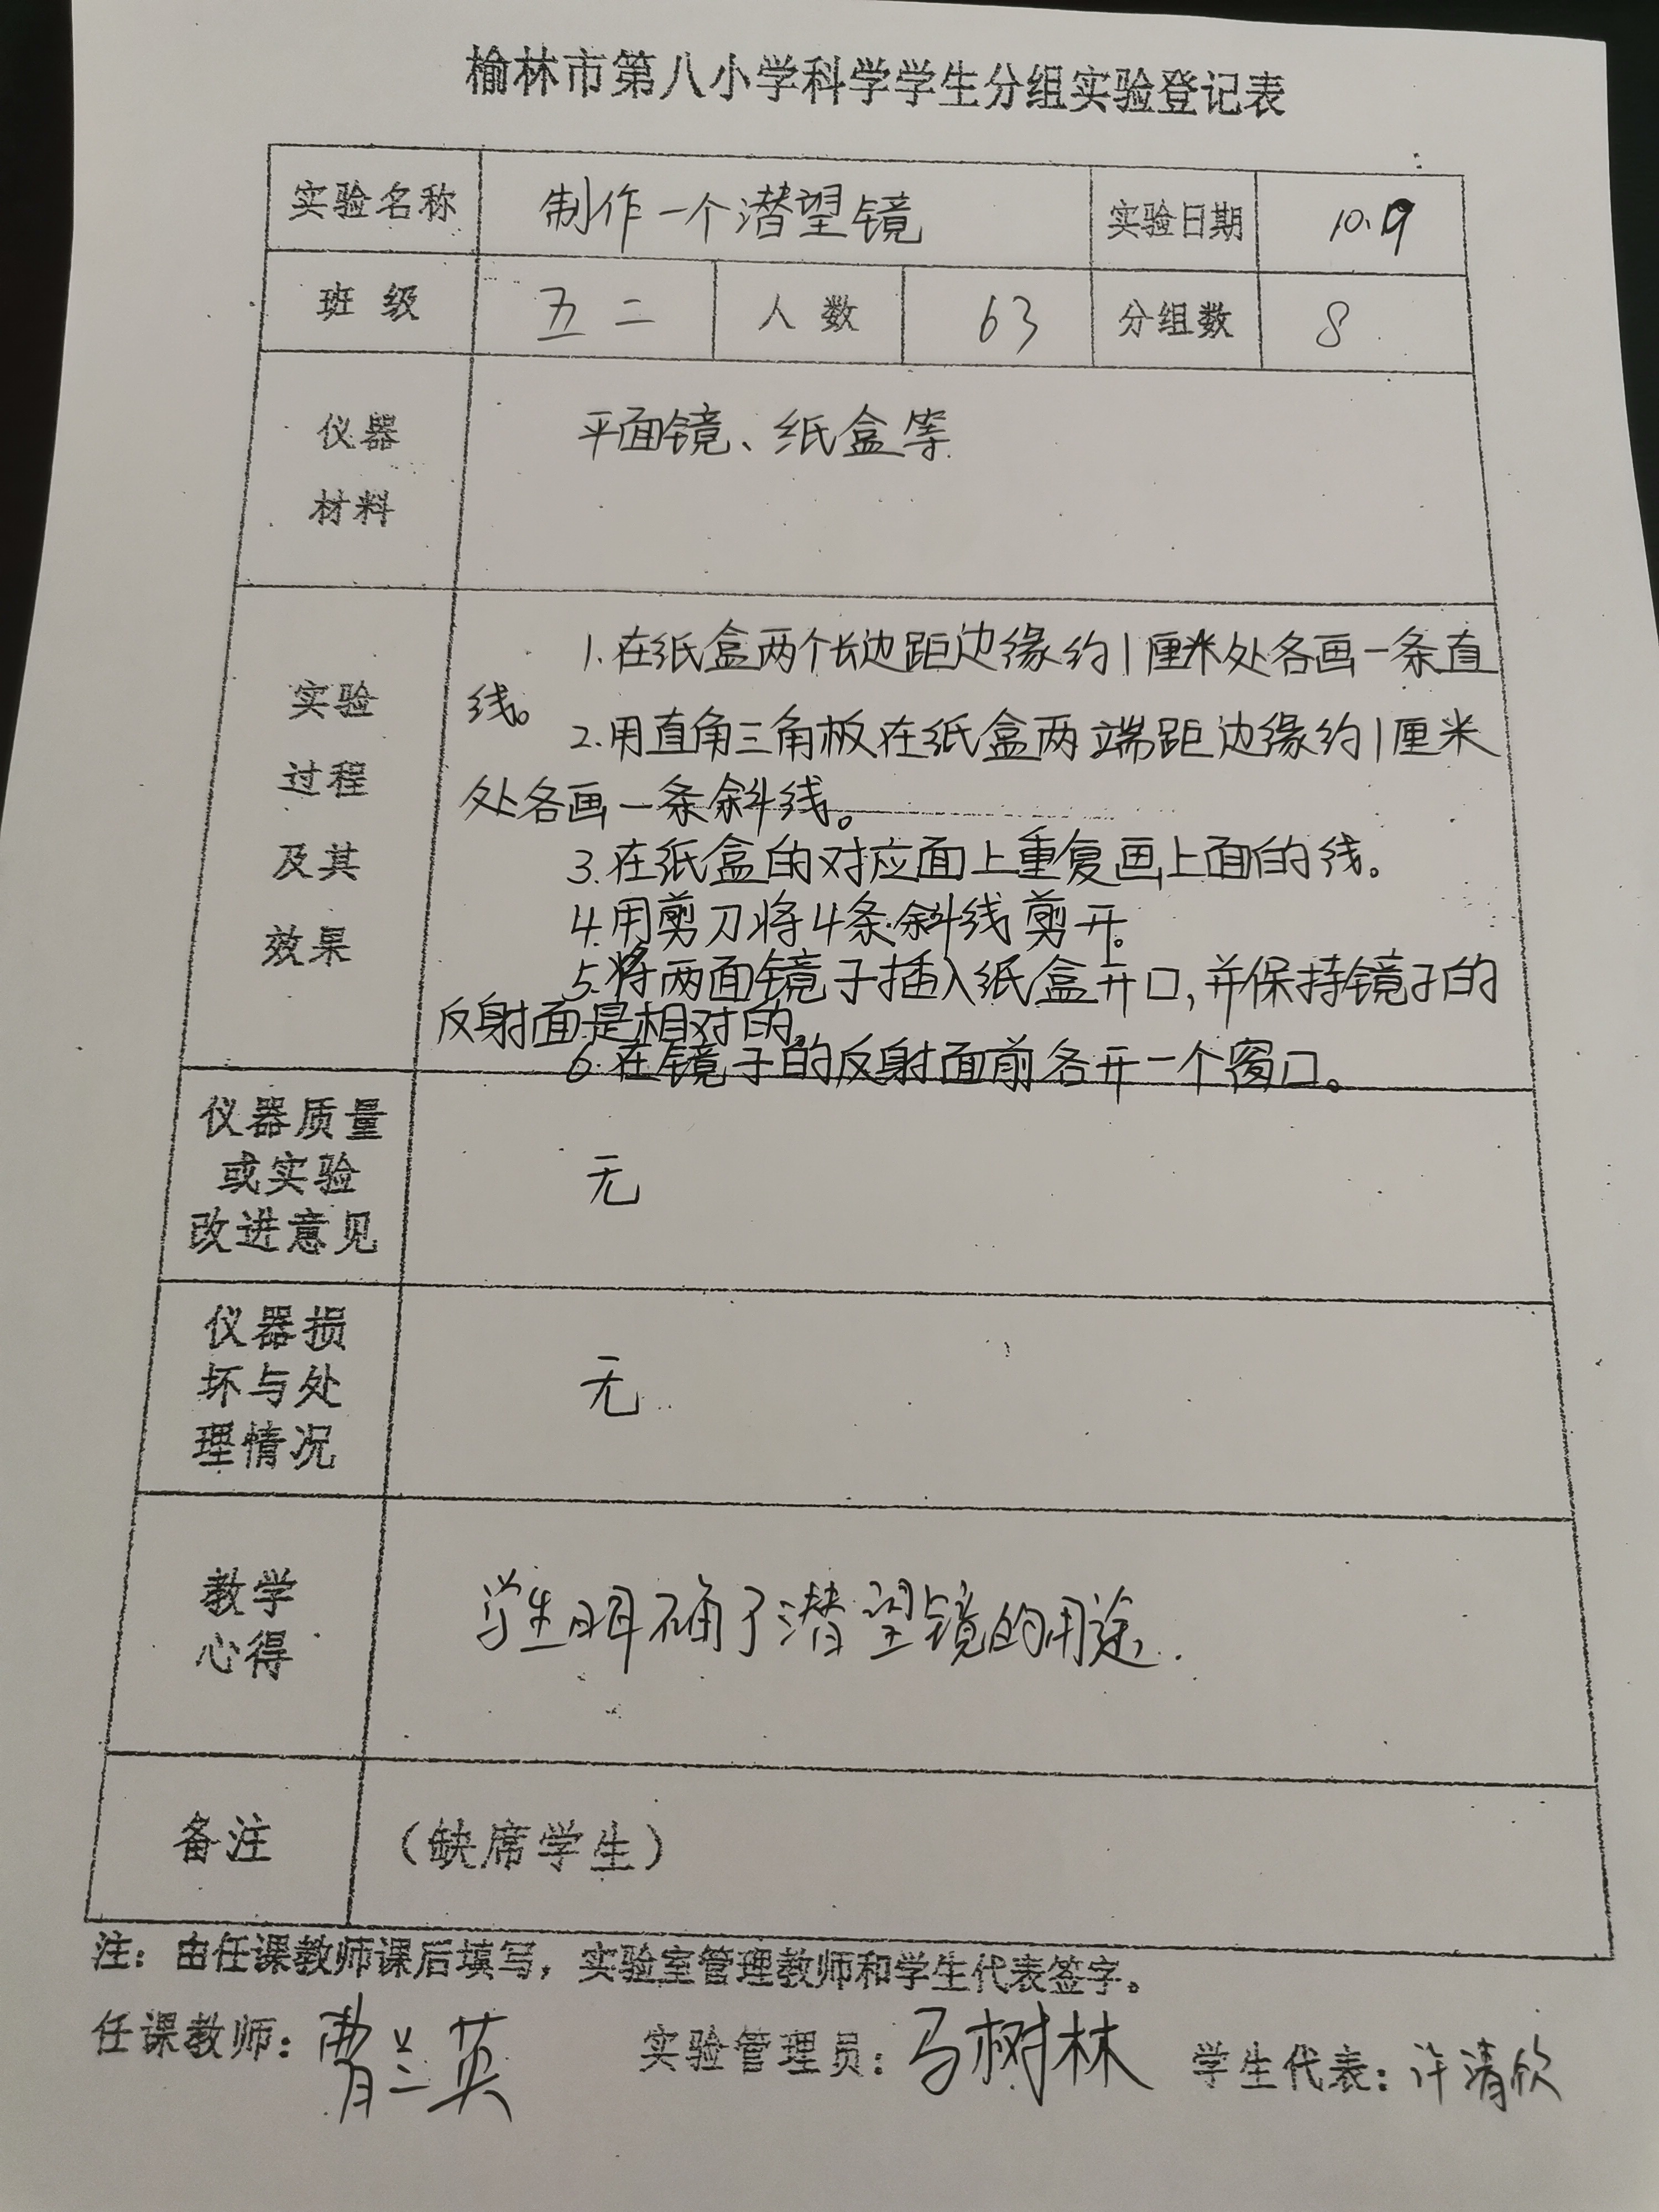 榆林市第八小学科学学生分组实验登记表
实验名称 制作一个潜望镜 实验日期 10.9
班级 五二 人数 63 分组数 8
仪器 平面镜、纸盒等
材料
1.在纸盒两个长边距边缘约1厘米处各画一条直
实验 线。
2.用直角三角板在纸盒两端距边缘约1厘米
过程 处各画一条斜线。
及其 3.在纸盒的对应面上重复画上面的线。
效果 4.用剪刀将4条斜线剪开。
5.将两面镜子插入纸盒开口,并保持镜子的
反射面是相对的。
6.在镜子的反射面前各开一个窗口。
仪器质量
或实验 无
改进意见
仪器损
坏与处 无
理情况
教学 学生明确了潜望镜的用途.
心得
备注 (缺席学生)
注:由任课教师课后填写,实验室管理教师和学生代表签字。
任课教师:曹兰英 实验管理员:马树林 学生代表:许清欣